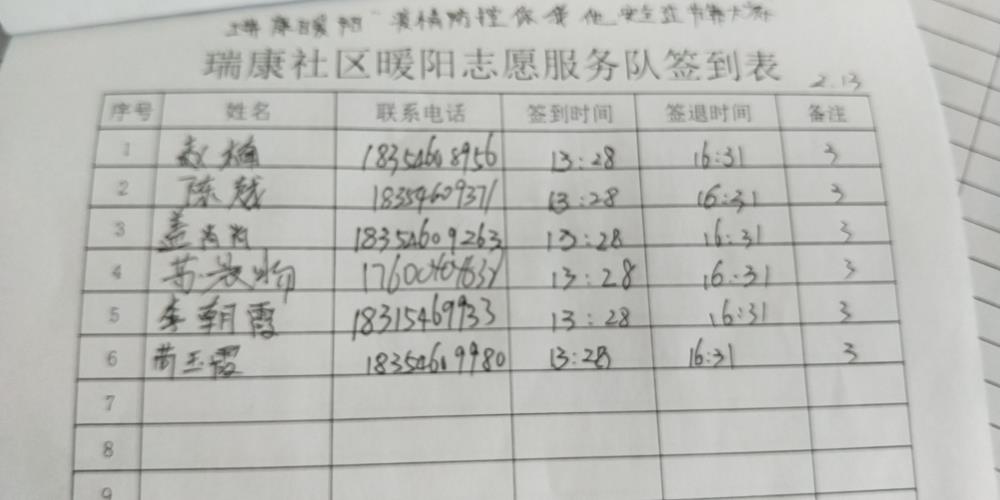 瑞康暖阳"疫情防控保安全
瑞康社区暖阳志愿服务队签到表
2.13
序号 姓名 联系电话 签到时间 签退时间 备注
1 赵楠 18354608956 13:28 16:31 3
2 陈越 18354609371 13:28 16:31 3
3 盖肖肖 18354609263 13:28 16:31 3
4 13:28 16:31 3
5 李朝霞 18315469933 13:28 16:31 3
6 玉霞 18354609980 13:28 16:31 3
7
8
9